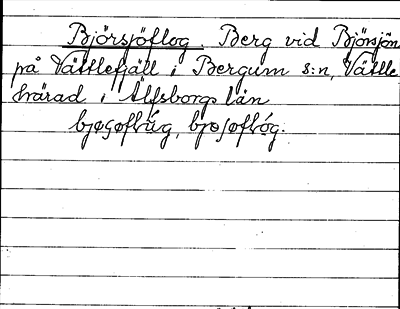 Björsjöflog. Berg vid Björsjön
på Vättlefjäll i Bergum s:n, Vättle
härad i Älfsborgs län